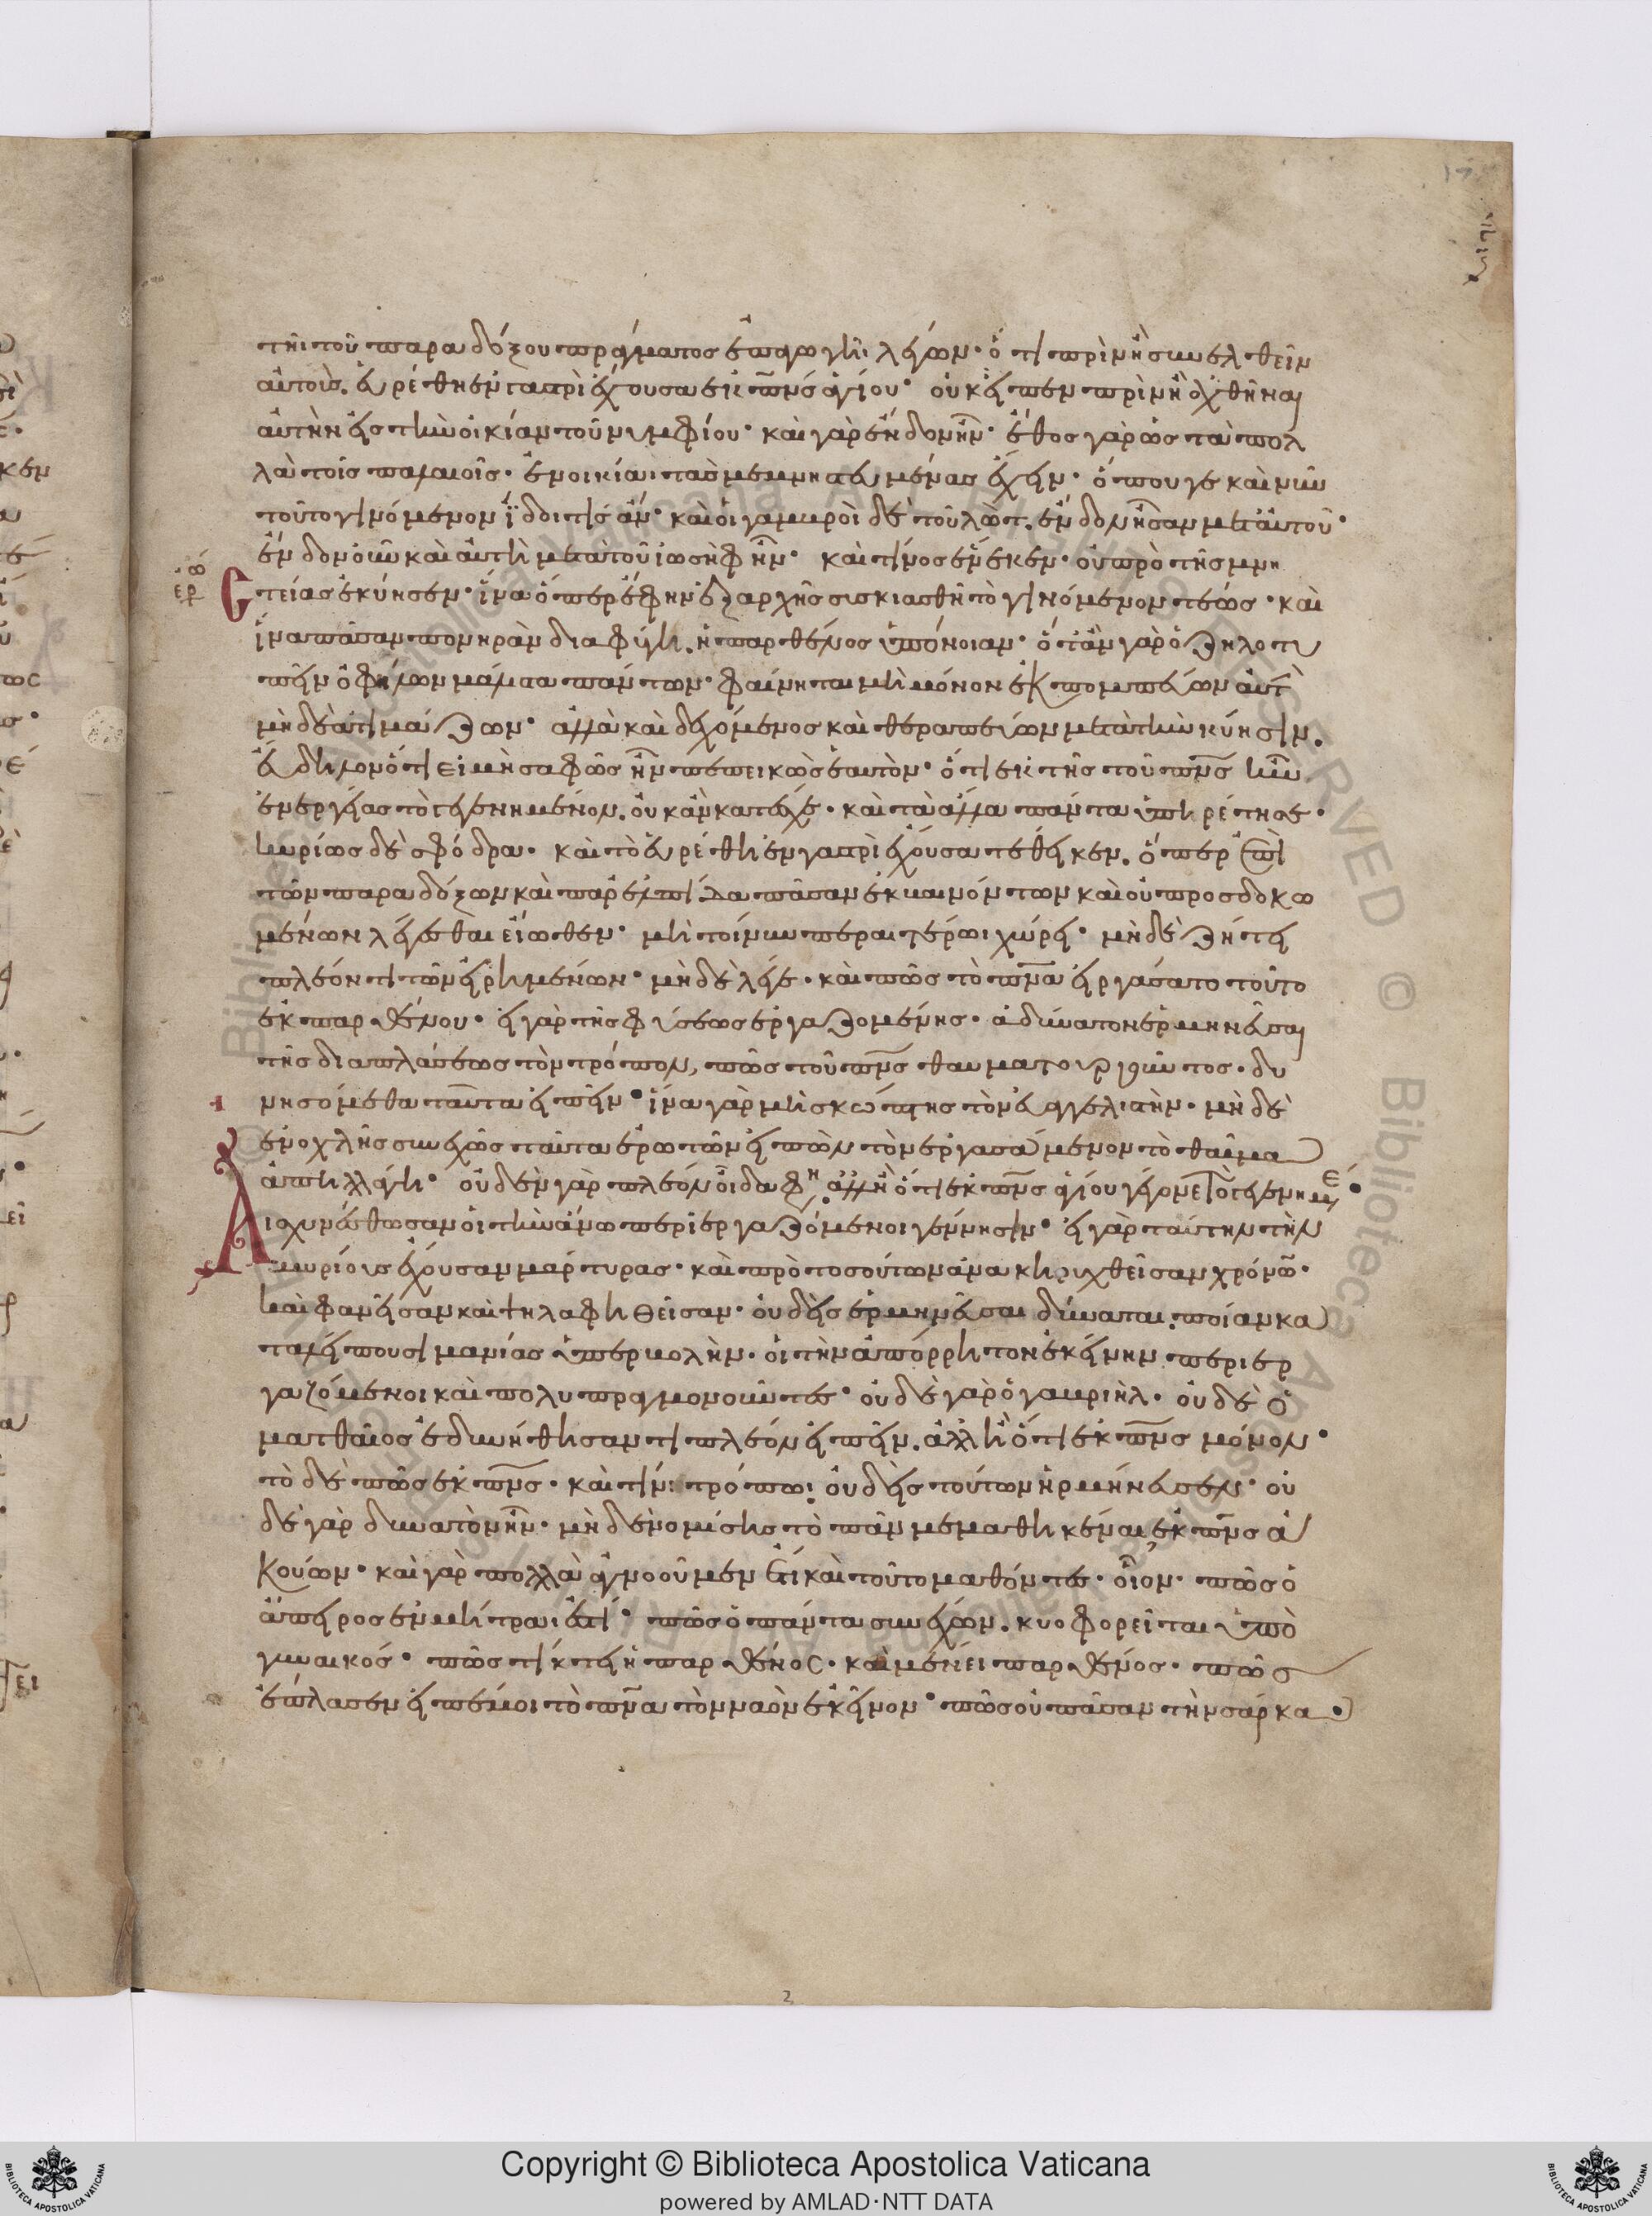 τῆι τοῦ παραδόξου πράγματος ἐπαγωγῆι λέγων· ὅτι πρὶν ἢ συνελθεῖν
αὐτοὺς. εὑρέθη ἐν γαστρὶ ἔχουσα ἐκ πνς ἁγίου· οὐκ εἶπεν πρὶν ἢ ἀχθῆναι
αὐτὴν εἰς τὴν οἰκίαν τοῦ νυμφίου· καὶ γὰρ ἔνδον ἦν· ἔθος γὰρ ὡς τὰ πολ
λὰ τοῖς παλαιοῖς. ἐν οἰκίαι τὰς μεμνηστευμένας ἔχειν· ὅπου γε καὶ νῦν
τοῦτο γινόμενον ἴδοι τίς ἄν· καὶ οἱ γαμβροὶ δὲ τοῦ λὼτ. ἔνδον ἦσαν μετ' αὐτοῦ·
ἔνδον οὖν καὶ αὐτὴ μετὰ τοῦ ἰωσὴφ ἦν· καὶ τίνος ἕνεκεν. οὐ πρὸ τῆς μνη
στείας ἐκύησεν· ἵνα ὅπερ ἔφην ἐξ αρχῆς συσκιασθῆ τὸ γινόμενον τέως· καὶ
ἵνα πᾶσαν πονηρὰν διαφύγη. ἡ παρθένος ὑπόνοιαν· ὅταν γὰρ ὁ ζηλοτυ
πεῖν ὀφείλων μάλιστα πάντων· φαίνηται μὴ μόνον ἐκπομπεύων αὐτ
μὴ δὲ ἀτιμάζων· ἀλλὰ καὶ δεχόμενος καὶ θεραπεύων μετὰ τὴν κύησιν.
εὔδηλον ὅτι εἰ μὴ σαφῶς ἦν πεπεικὼς ἑαυτὸν· ὅτι ἐκ τῆς τοῦ πνς ἦν
ἐνεργείας τὸ γεγεννημένον. οὐκ ἂν κατεῖχε· καὶ τὰ ἄλλα πάντα ὑπηρέτησε·
κυρίως δὲ σφόδρα· καὶ τὸ εὑρέθη ἐν γαστρὶ ἔχουσα τέθεικεν. ὅπερ ἐπὶ
τῶν παραδόξων καὶ παρ' ἐλπίδα πᾶσαν ἐκβαινόντων καὶ οὐ προσδοκω
μένων λέγεσθαι εἴωθεν· μὴ τοίνυν περαιτέρωι χώρει· μὴ δὲ ζήτει
πλέον τι τῶν εἰρημένων· μὴ δὲ λέγε· καὶ πῶς τὸ πνα εἰργάσατο τοῦτο
ἐκ παρθένου· εἰ γὰρ τῆς φύσεως ἐργαζομένης· ἀδύνατον ἑρμηνεῦσαι
τῆς διαπλάσεως τὸν τρόπον, πῶς τοῦ πνς θαυματουργοῦντος. δυ
νησόμεθα ταῦτα εἰπεῖν· ἵνα γὰρ μὴ σκώπτης τὸν εὐαγγελιστὴν. μὴ δὲ
ἐνοχλῆς συνεχῶς ταῦτα ἐρωτῶν εἰπὼν τὸν ἐργασάμενον τὸ θαῦμα
ἀπηλλάγη· οὐδὲν γὰρ πλέον οἶδα φη. ἀλλ' ἢ ὅτι ἐκ πνς ἁγίου γέγονε τὸ γεγενημε·
Αἰσχυνέσθωσαν οἱ τὴν ἄνω περιεργαζόμενοι γέννησιν· εἰ γὰρ ταύτην τὴν
μυρίους ἔχουσαν μάρτυρας· καὶ πρὸ τοσούτων ἀνακηρυχθεῖσαν χρόνω·
καὶ φανεῖσαν καὶ ψηλαφηθεῖσαν· οὐδεὶς ἑρμηνεῦσαι δύναται. ποίαν κα
ταλείπουσι μανίας ὑπερβολὴν. οἱ τὴν ἀπόρρητον ἐκείνην περιερ
γαζόμενοι καὶ πολυπραγμονοῦντες· οὐδὲ γὰρ ὁ γαβριὴλ. οὐδὲ ὁ
ματθαῖος ἐδυνήθησαν τι πλέον εἰπεῖν. ἀλλ' ἢ ὅτι ἐκ πνς μόνον·
τὸ δὲ πῶς ἐκ πνς. καὶ τίνι τρόπωι οὐδεὶς τούτων ἡρμήνευσεν· οὐ
δὲ γὰρ δυνατὸν ἦν· μὴ δὲ νομίσης τὸ πᾶν μεμαθηκέναι ἐκ πνς ἀ
κούων· καὶ γὰρ πολλὰ ἀγνοοῦμεν ἔτι καὶ τοῦτο μαθόντες· οἷον. πῶς ὁ
ἄπειρος ἐν μήτραι ἐστί· πῶς ὁ πάντα συνέχων. κυοφορεῖται ὑπὸ
γυναικός· πῶς τίκτει ἡ παρθένος. καὶ μένει παρθένος. πῶς
ἔπλασεν εἰπέ μοι τὸ πνα τὸν ναὸν ἐκεῖνον· πῶς οὐ πᾶσαν τὴν σάρκα·
Copyright © Biblioteca Apostolica Vaticana
powered by AMLAD·NTT DATA